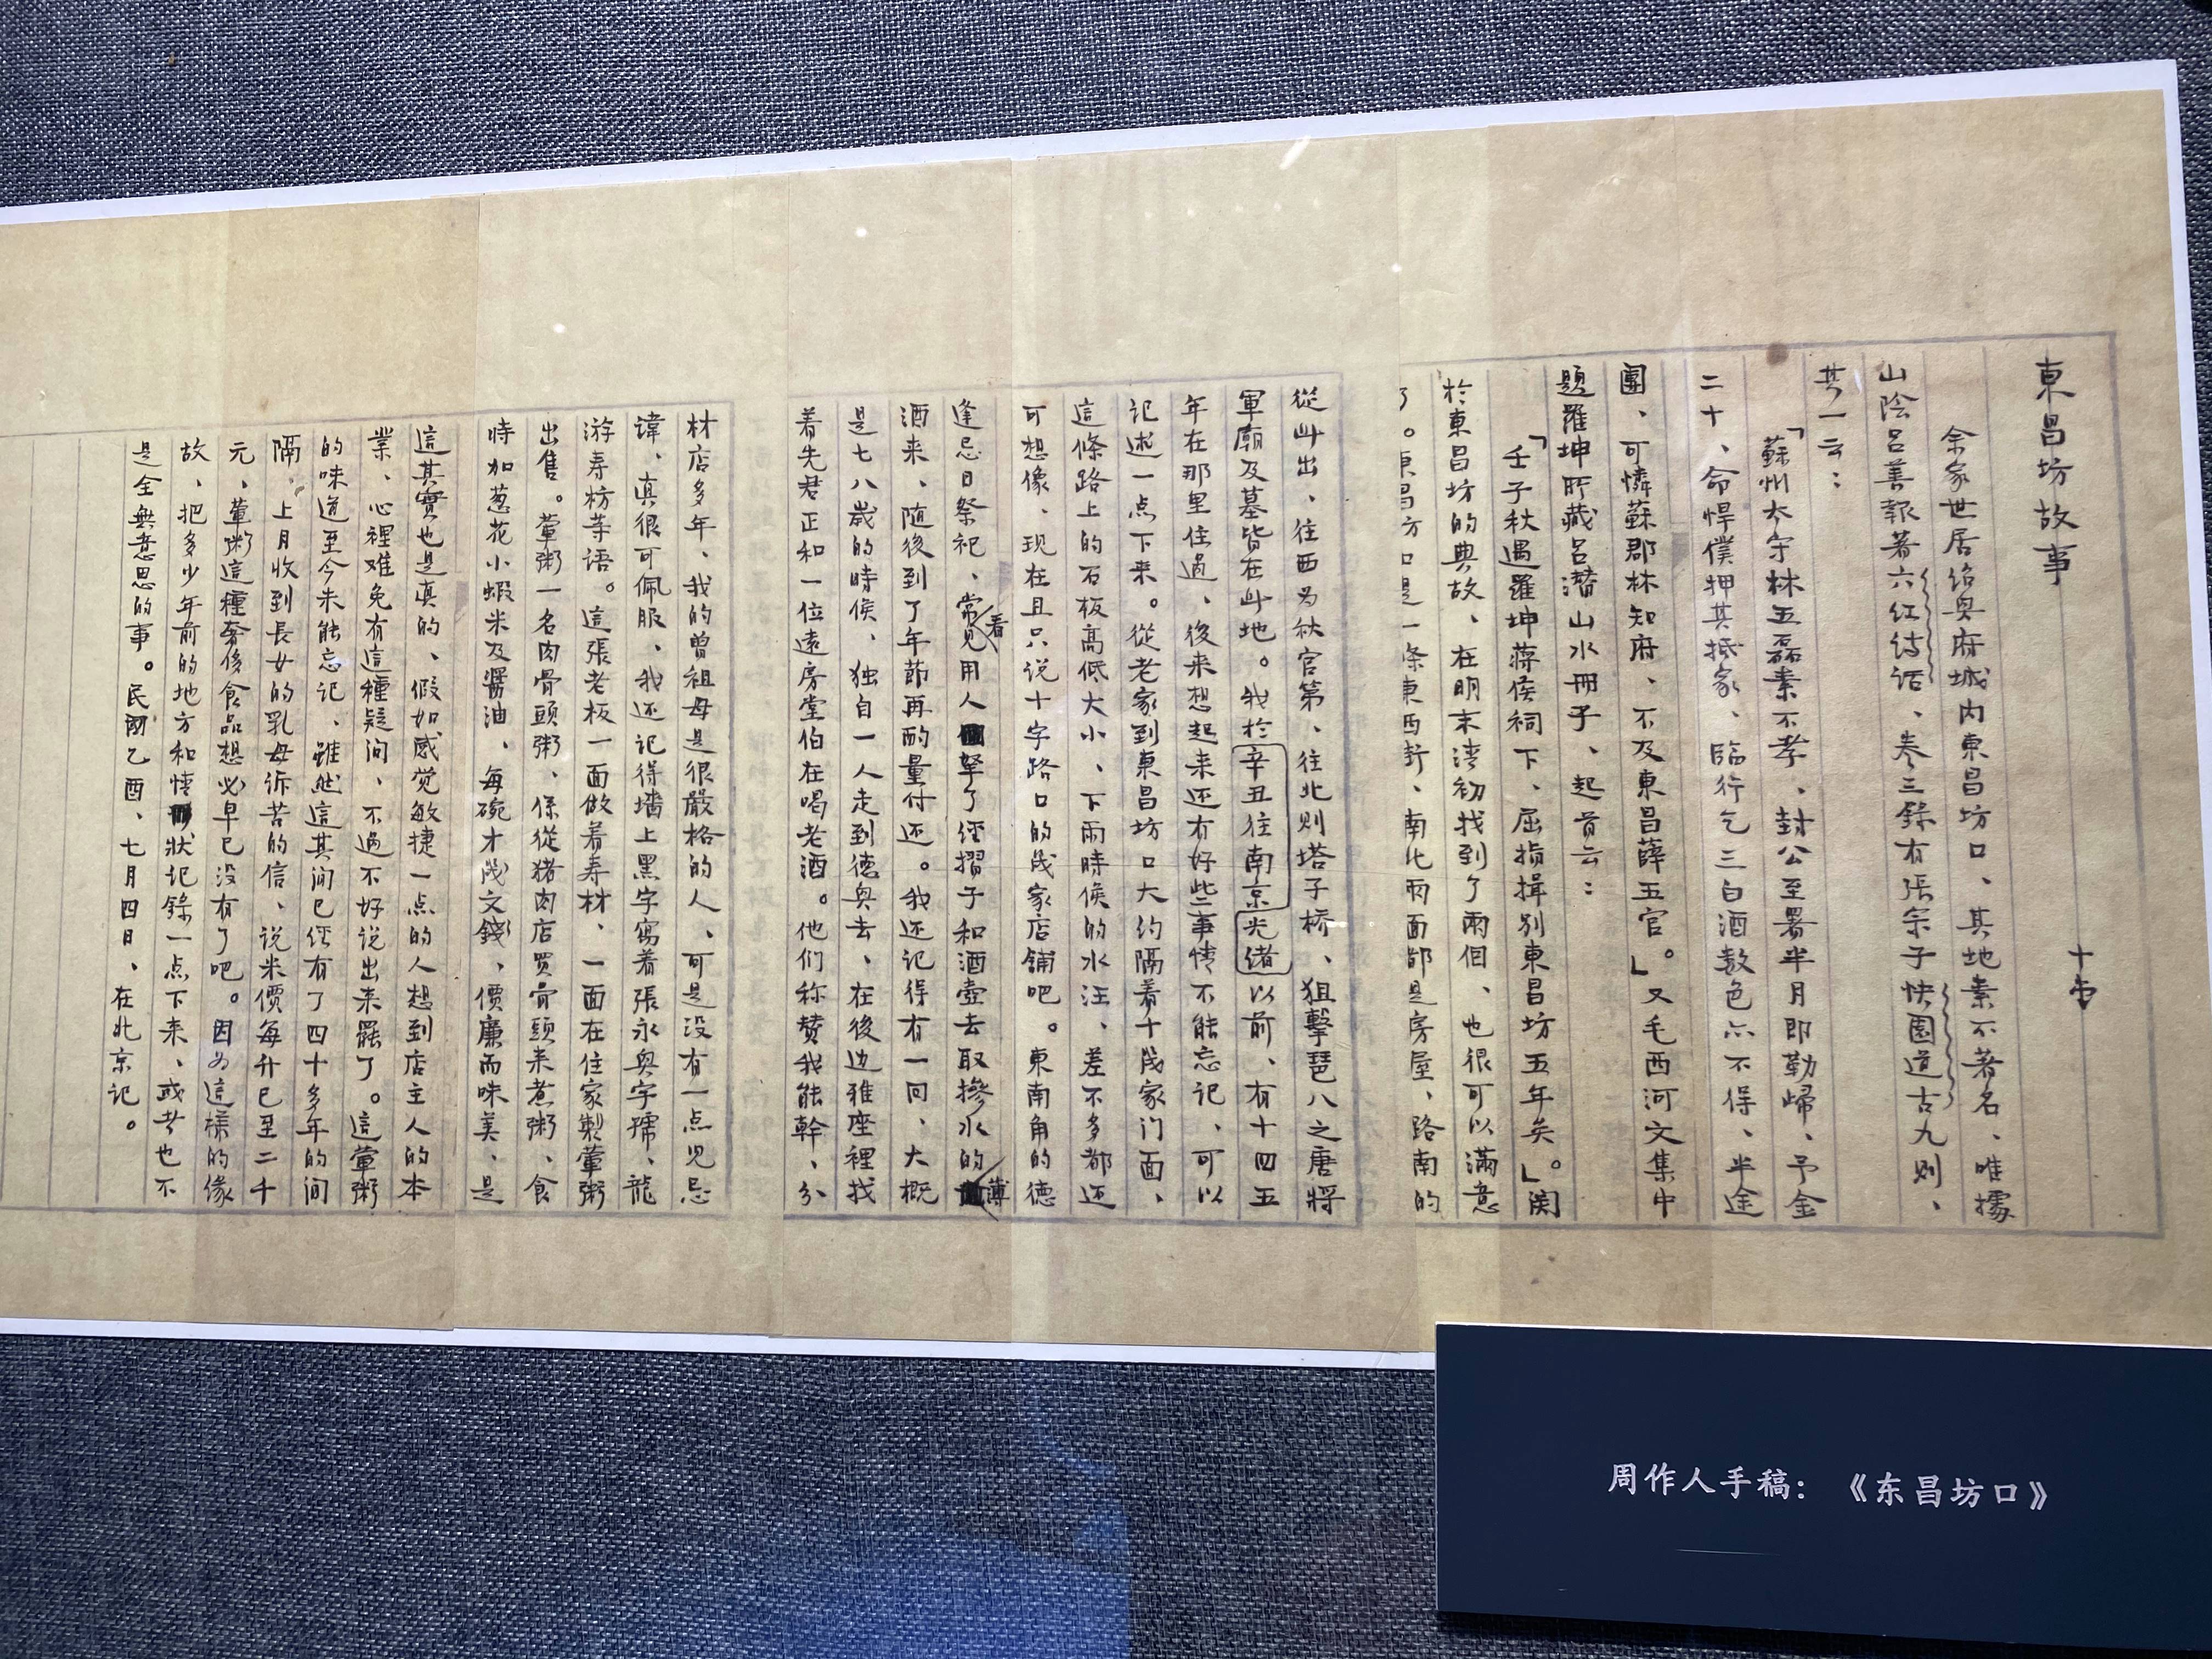 東昌坊故事
余家世居紹興府城内東昌坊口、其地素不著名、唯據
山陰呂善報著六红诗话、卷三錄有張宗子快園道古九则、
其一云：
「蘇州太守林五磊素不孝、封公至署半月即勒歸、予金
二十、命悍僕押其抵家、臨行乞三白酒数色亦不得、半途
團、可憐蘇郡林知府、不及東昌薛五官。」又毛西河文集中
題羅坤所藏呂潜山水冊子、起首云：
「壬子秋遇羅坤蒋侯祠下、屈指揖别東昌坊五年矣。」関
於東昌坊的典故、在明末清初找到了兩個、也很可以滿意
了。東昌方口是一条東西街、南北两面都是房屋、路南的
從此出、往西为秋官第、往北则塔子桥、狙擊琶八之唐將
軍廟及墓皆在此地。我於辛丑往南京光绪以前、有十四五
年在那里住過、後来想起来还有好些事情不能忘记、可以
记述一点下来。從老家到東昌坊口大约隔着十幾家门面、
這條路上的石板高低大小、下雨時候的水汪、差不多都还
可想像、现在且只说十字路口的幾家店舖吧。東南角的德
逢忌日祭祀、常看見用人拏了经摺子和酒壶去取摻水的薄
酒来、随後到了年節再酌量付还。我还记得有一回、大概
是七八歲的時候、独自一人走到德興去、在後边雅座裡找
着先君正和一位遠房堂伯在喝老酒。他们称赞我能幹、分
材店多年、我的曾祖母是很嚴格的人、可是没有一点児忌
諱、真很可佩服、我还记得墻上黑字寫着張永興字號、龍
游寿枋等语。這張老板一面做着寿材、一面在住家製葷粥
出售。葷粥一名肉骨頭粥、係從猪肉店買骨頭来煮粥、食
時加葱花小蝦米及醬油、每碗才幾文錢、價廉而味美、是
這其實也是真的、假如感觉敏捷一点的人想到店主人的本
業、心裡难免有這種疑问、不過不好说出来罷了。這葷粥
的味道至今未能忘记、雖然這其间已经有了四十多年的间
隔。上月收到長女的乳母诉苦的信、说米價每升已至二千
元、葷粥這種奢侈食品想必早已没有了吧。因为這様的缘
故、把多少年前的地方和情形状记錄一点下来、或者也不
是全無意思的事。民國乙酉、七月四日、在北京记。
周作人手稿：《东昌坊口》